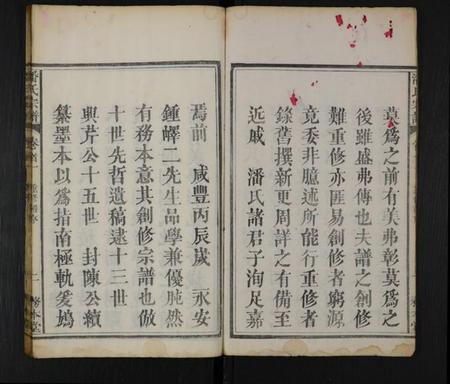 莫為之前有美弗彰莫為之
後雖盛弗傳也夫譜之創修
難重修亦匪易創修者窮源
竟委非臆述所能行重修者
錄舊撰新更周詳之有備至
近戚 潘氏諸君子洵足嘉
焉前 咸豐丙辰歲 永安
鍾嶧二先生品學兼優肫然
有務本意其創修宗譜也倣
十世先哲遺稿逮十三世
興芹公十五世 封陳公續
纂墨本以為指南極軌爰鳩
潘氏宗譜
卷首
務本堂